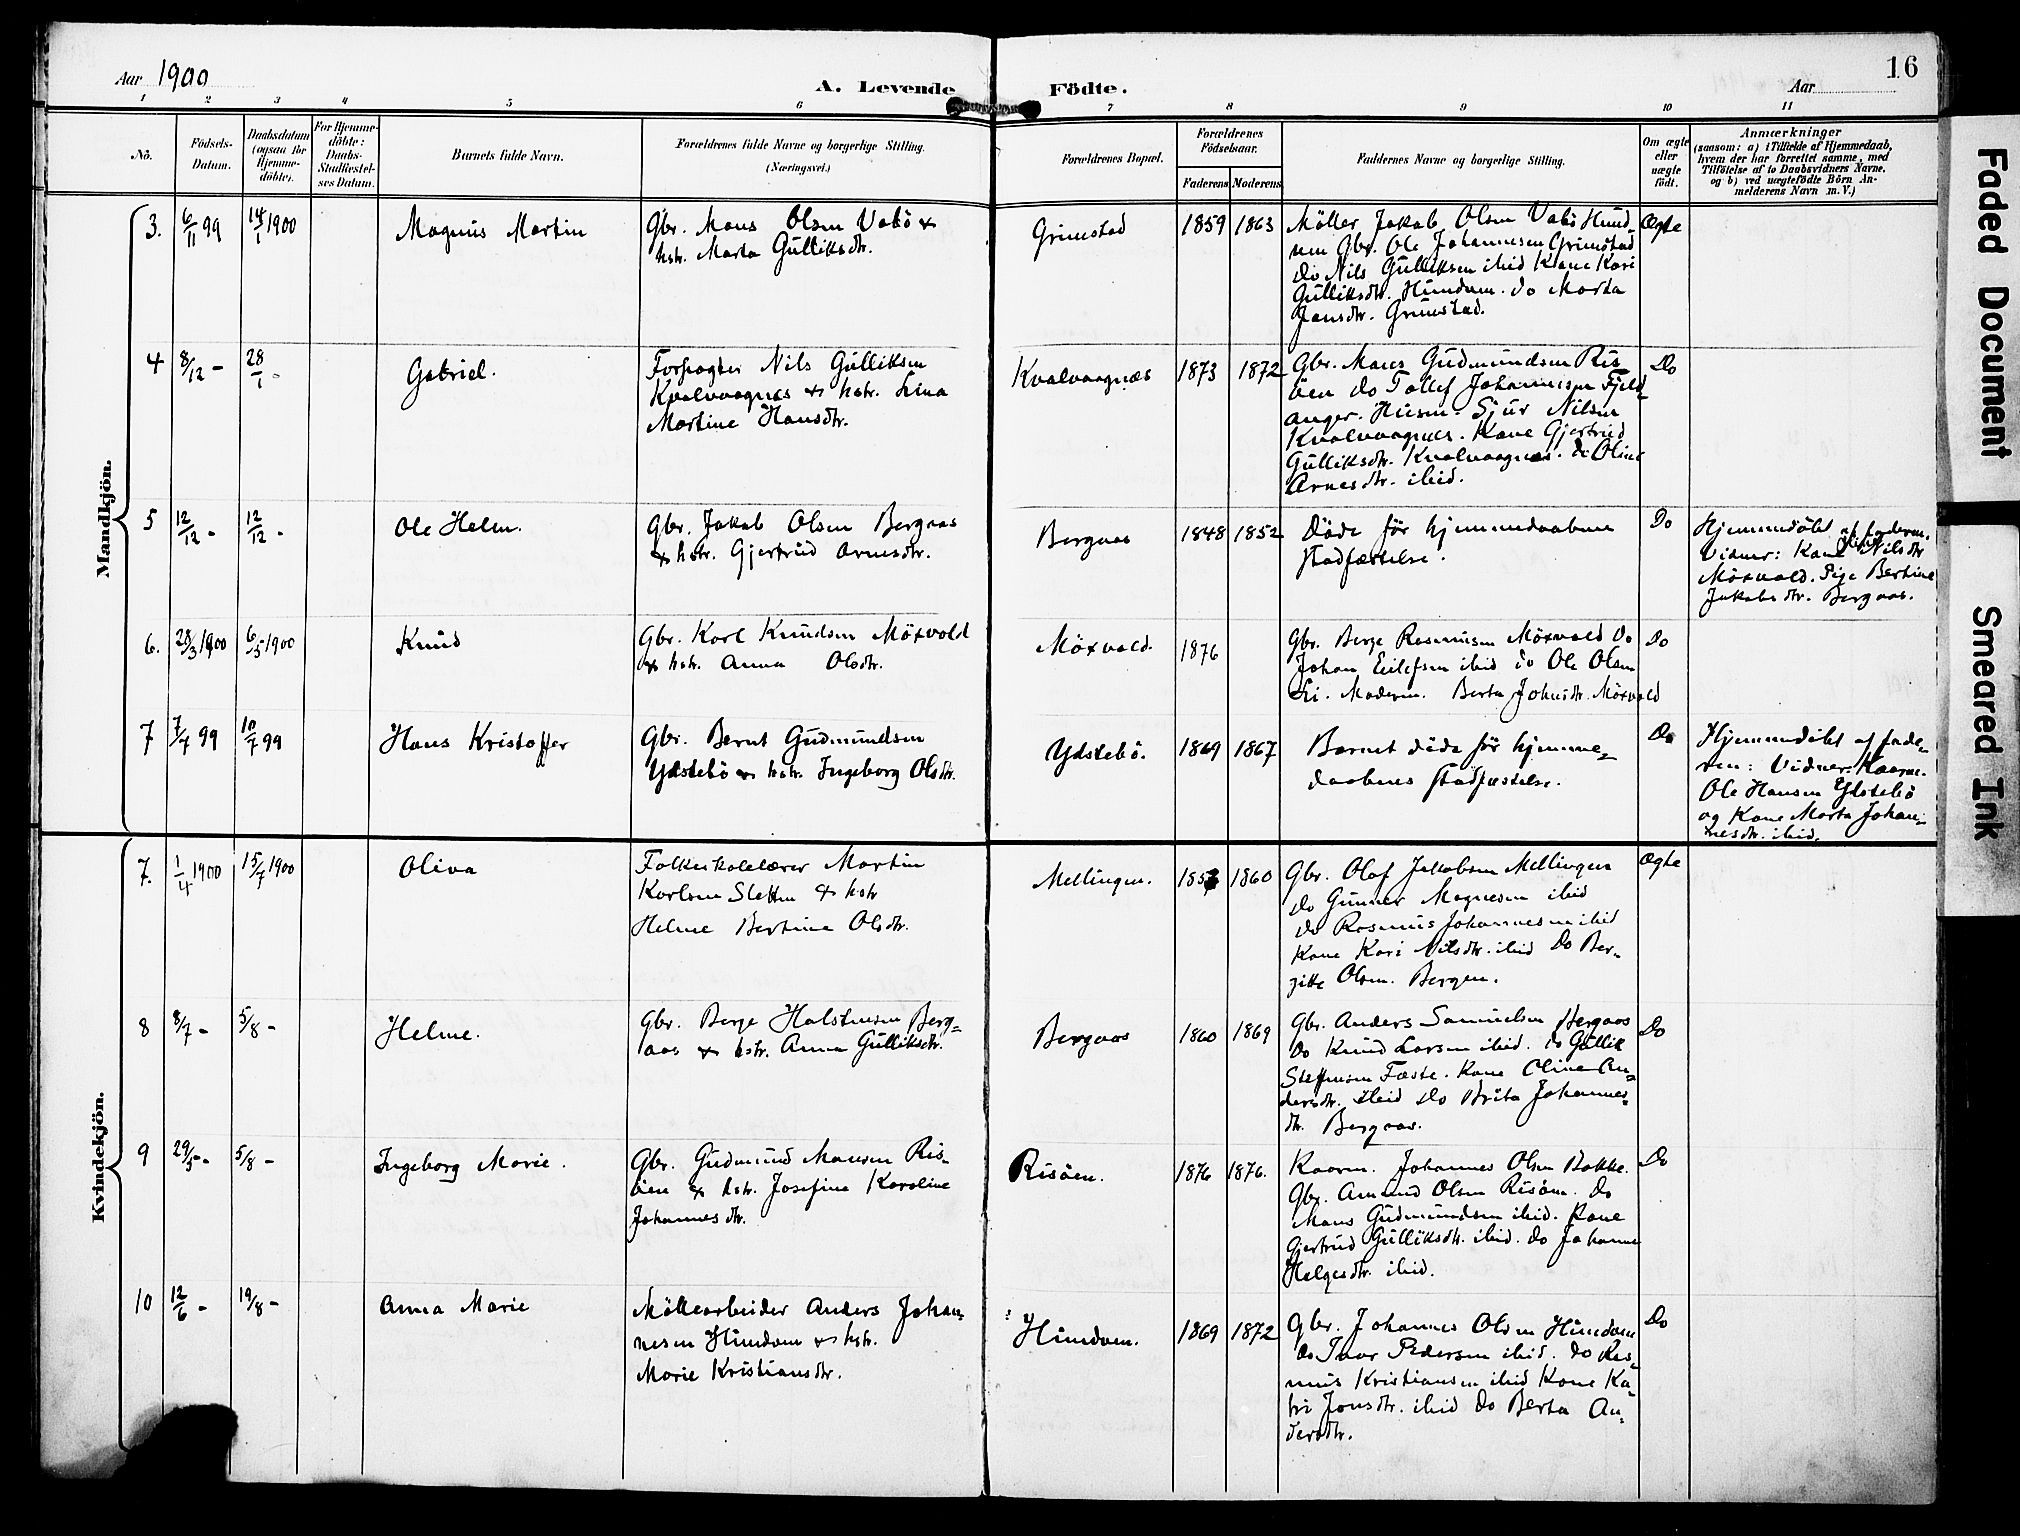 Aar 1900
A. Levende Födte.
Aar
16
1 2 3 4 5 6 7 8 9 10 11
No.
Födsels-Datum.
Daabsdatum (ogsaa for Hjemme-döbte).
For Hjemme-döbte: Daabs-Stadfæstel-ses Datum.
Barnets fulde Navn.
Forældrenes fulde Navne og borgerlige Stilling. (Næringsvei.)
Forældrenes Bopæl.
Forældrenes Födselsaar.
Faderens Moderens
Faddernes Navne og borgerlige Stilling.
Om ægte eller uægte födt.
Anmærkninger
(saasom: a) i Tilfælde af Hjemmedaab,
hvem der har forrettet samme, med
Tilföielse af to Daabsvidners Navne,
og b) ved uægtefödte Börn An-
melderens Navn m. V.)
Mandkjön.
3. 6/11 99 14/1 1900 Magnus Martin
Gbr. Mons Olsen Vabö &
hstr. Marta Gulliksdtr.
Grimstad 1859 1863
Möller Jakob Olsen Vabö Hund-
nem Gbr. Ole Johannesen Grimstad
Do Nils Gulliksen ibid Kone Kari
Gulliksdtr. Hundom. do Marta
Jansdtr. Grimstad.
Ægte
4 8/12 - 28/1 - Gabriel.
Forpagter Nils Gulliksen
Kvalvaagnæs & hstr. Lina
Martine Hansdtr.
Kvalvaagnæs 1873 1872
Gbr. Mans Gudmundsen Ris
öen do Tollef Johannesen Fjeld-
anger. Husm. Sjur Nilsen
Kvalvaagnes. Kone Gjertrud
Gulliksdtr. Kvalvaagnæs. do Oline
Arnesdtr. ibid.
Do
5 12/12 - 12/12 - Ole Helen.
Gbr. Jakob Olsen Bergaas
& hstr. Gjertrud Arnesdtr.
Bergaas 1848 1852
Döde för hjemmedaabens
stadfæstelse.
Do
Hjemmedöbt af faderen.
Vidner: Kone Nilsdtr
Möxvald. Pige Bertine
Jakobsdtr. Bergaas.
6. 28/3 1900 6/5 1900 Knud
Gbr. Karl Knudsen Möxvold
& hstr. Anna Olsdtr.
Möxvold. 1876
Gbr. Berge Rasmusen Möxvold Do
Johan Eilefsen ibid do Ole Olsen
Li. Moderen. Berta Johnsdtr. Möxvold
Do
7 7/7 99 10/7 99 Hans Kristoffer
Gbr. Bernt Gudmundsen
Ydstebö & hstr. Ingeborg Olsdtr.
Ydstebö. 1869 1867
Barnet döde för hjemme-
daabens stadfæstelse.
Do
Hjemmedöbt af fade-
ren: Vidner: Kaarm.
Ole Hansen Ydstebö
og Kone Marta Johan-
nesdtr. ibid.
Kvindekjön.
7. 1/4 1900 15/7 1900 Oliva
Folkeskolelærer Martin
Karlsen Sletten & hstr
Helene Bertine Olsdtr.
Mellingen. 1860
Gbr. Olaf Jakobsen Mellingen
do Gunnar Magnesen ibid
do Rasmus Johannesen ibid
Kone Kari Nilsdtr. ibid Do Ber-
gitte Olsen. Bergen.
Ægte
8 8/7 - 5/8 - Helene.
Gbr. Berge Halstensen Berg-
aas & hstr. Anna Gulliksdtr.
Bergaas 1860 1869
Gbr. Anders Samuelsen Bergaas
Do Knud Larsen ibid. do Gullik
Steffensen Fæste. Kone Oline An-
dersdtr. ibid do Brita Johannes-
dtr. Bergaas.
Do
9 29/5 - 5/8 - Ingeborg Marie.
Gbr. Gudmund Monsen Ris-
öen & hstr. Josefine Karoline
Johannesdtr.
Risöen. 1876 1876.
Kaarm. Johannes Olsen Bakke.
Gbr. Amund Olsen Risöen. Do
Mans Gudmundsen ibid. Kone
Gjertrud Gulliksdtr. ibid. do Johanne
Helgesdtr. ibid.
Do
10 12/6 - 19/8 - Anna Marie
Möllearbeider Anders Johan-
nesen Hundom & hstr.
Marie Kristiansdtr.
Hundom. 1869 1872
Gbr. Johannes Olsen Hundom
do Ivar Pedersen ibid. do Ras-
mus Kristiansen ibid Kone Ka-
tri Jonsdtr. ibid do Berta An-
dersdtr.
Do
Faded Document
Smeared Ink